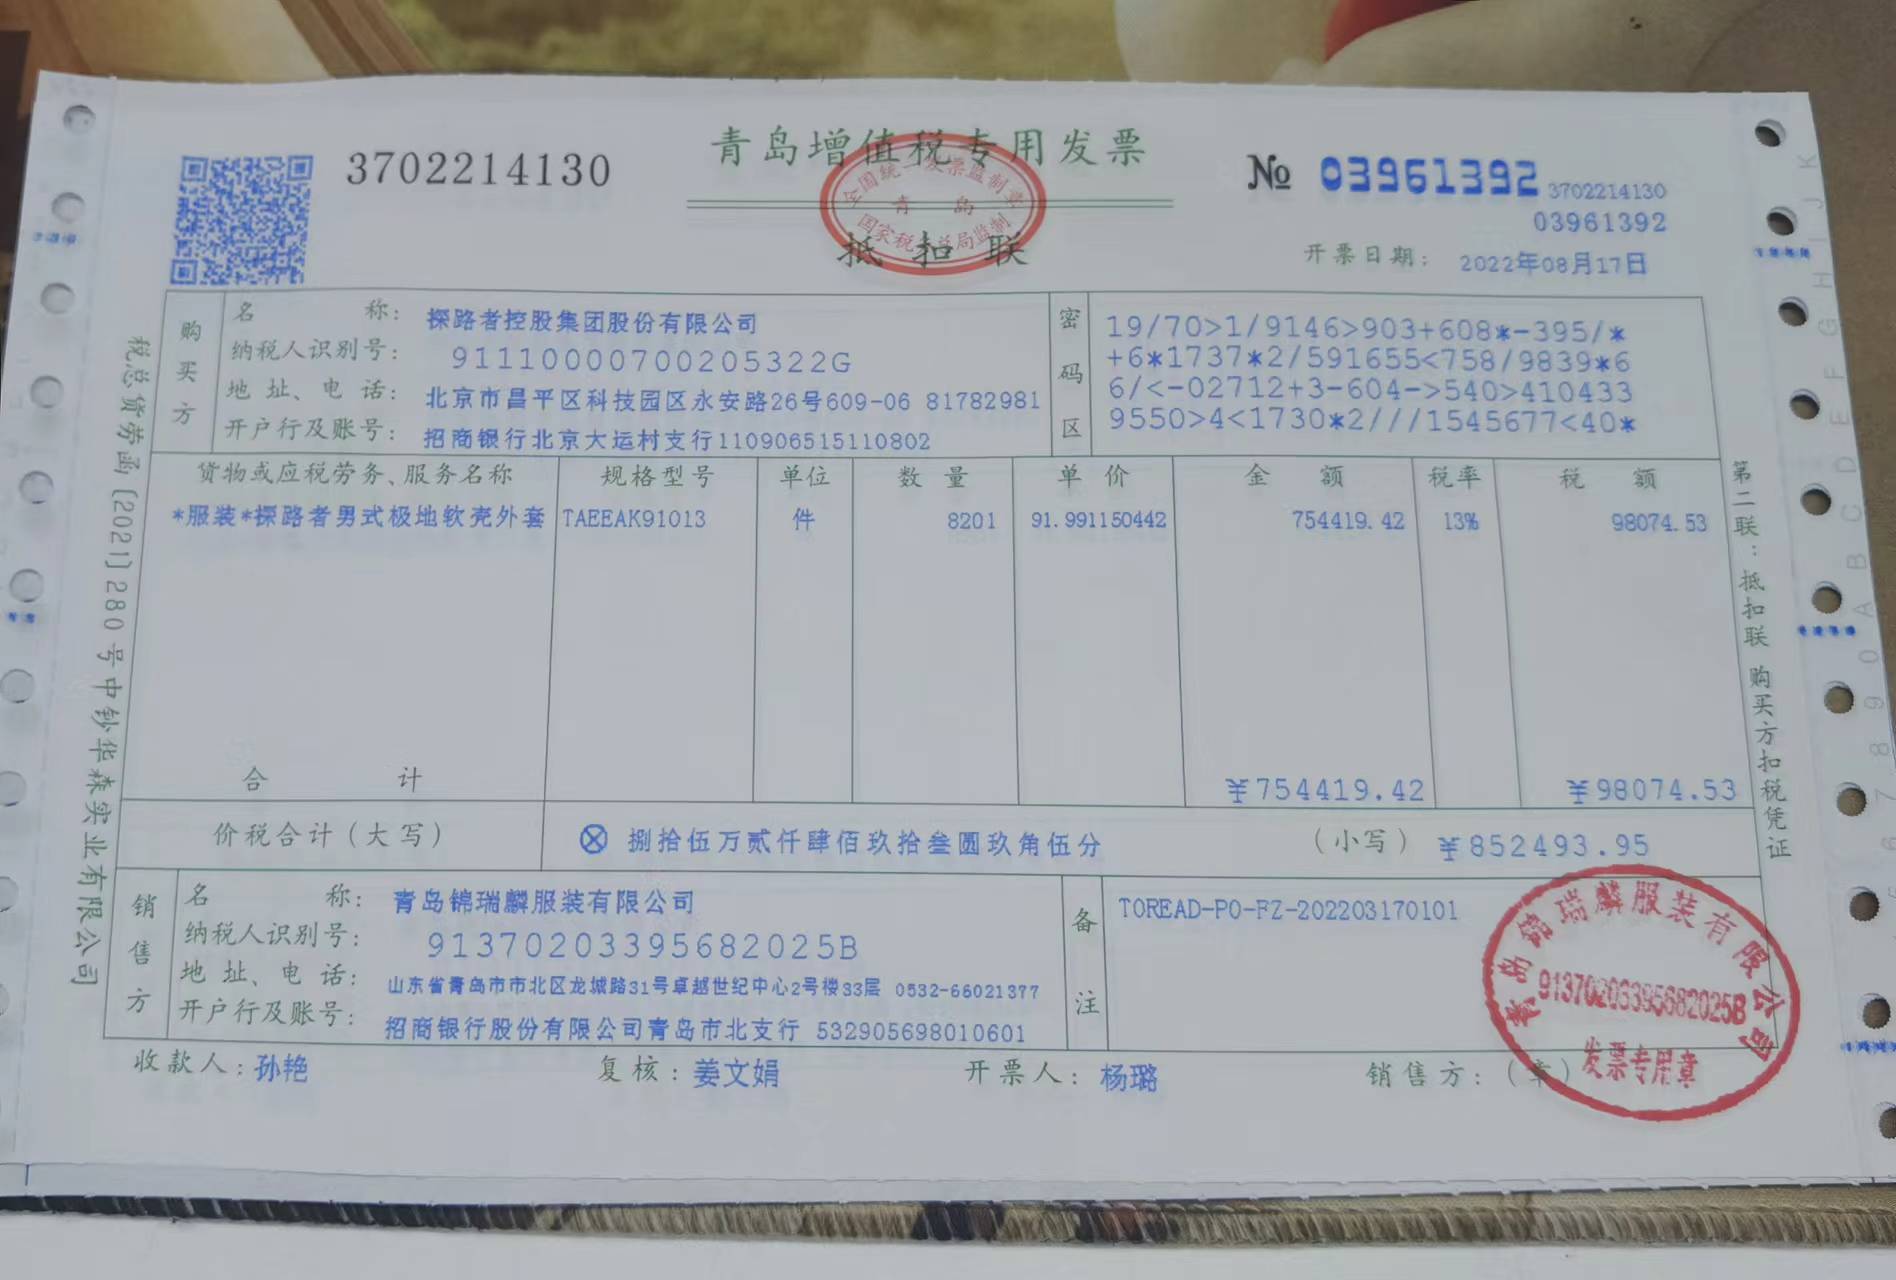 3702214130
青岛增值税专用发票
全国统一发票监制章
青岛
国家税务总局监制
抵扣联
№ 03961392
3702214130
03961392
开票日期: 2022年08月17日
税总货劳函〔2021〕280号中钞华森实业有限公司
购买方
名称: 探路者控股集团股份有限公司
纳税人识别号: 91110000700205322G
地址、电话: 北京市昌平区科技园区永安路26号609-06 81782981
开户行及账号: 招商银行北京大运村支行110906515110802
密码区
19/70>1/9146>903+608*-395/*
+6*1737*2/591655<758/9839*6
6/<-02712+3-604->540>410433
9550>4<1730*2///1545677<40*
货物或应税劳务、服务名称 规格型号 单位 数量 单价 金额 税率 税额
*服装*探路者男式极地软壳外套 TAEEAK91013 件 8201 91.991150442 754419.42 13% 98074.53
合计 ¥754419.42 ¥98074.53
价税合计(大写) ⊗ 捌拾伍万贰仟肆佰玖拾叁圆玖角伍分 (小写) ¥852493.95
销售方
名称: 青岛锦瑞麟服装有限公司
纳税人识别号: 91370203395682025B
地址、电话: 山东省青岛市市北区龙城路31号卓越世纪中心2号楼33层 0532-66021377
开户行及账号: 招商银行股份有限公司青岛市北支行 532905698010601
备注
TOREAD-PO-FZ-202203170101
青岛锦瑞麟服装有限公司
91370203395682025B
发票专用章
收款人: 孙艳 复核: 姜文娟 开票人: 杨璐 销售方: (章)
第二联: 抵扣联 购买方扣税凭证